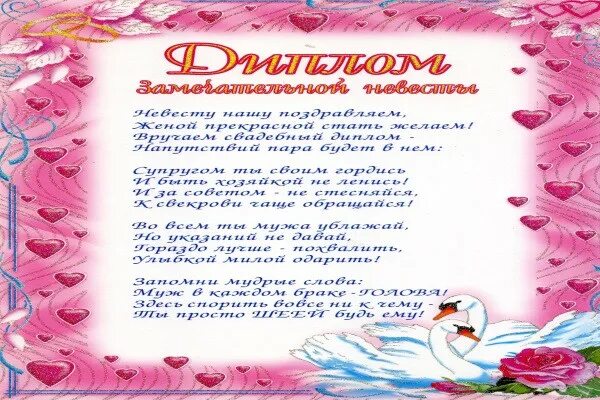 Диплом
Замечательной невесты
Невесту нашу поздравляем,
Женой прекрасной стать желаем!
Вручаем свадебный диплом -
Напутствий пара будет в нем:
Супругом ты своим гордись
И быть хозяйкой не ленись!
И за советом - не стесняйся,
К свекрови чаще обращайся!
Во всем ты мужа ублажай,
Но указаний не давай,
Гораздо лучше - похвалить,
Улыбкой милой одарить!
Запомни мудрые слова:
Муж в каждом браке -ГОЛОВА!
Здесь спорить вовсе ни к чему -
Ты просто ШЕЕЙ будь ему!